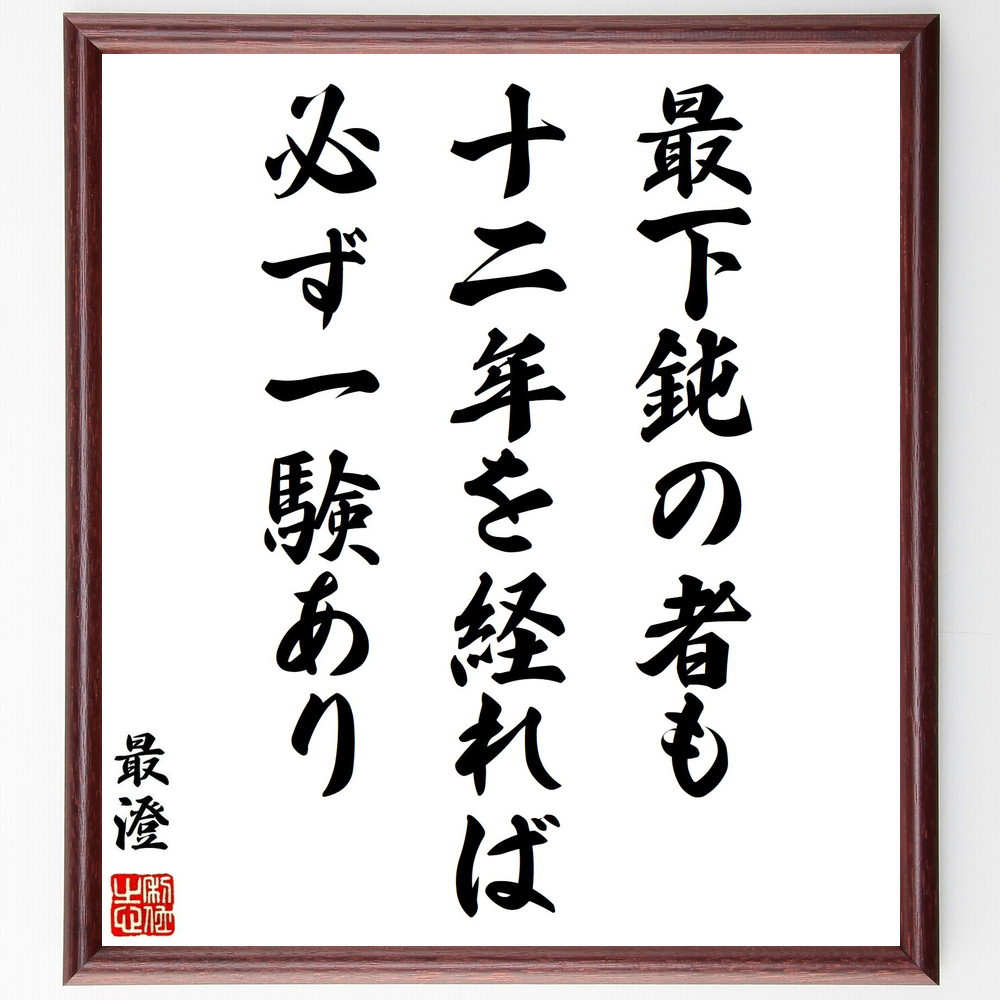 最下鈍の者も
十二年を経れば
必ず一験あり
最澄